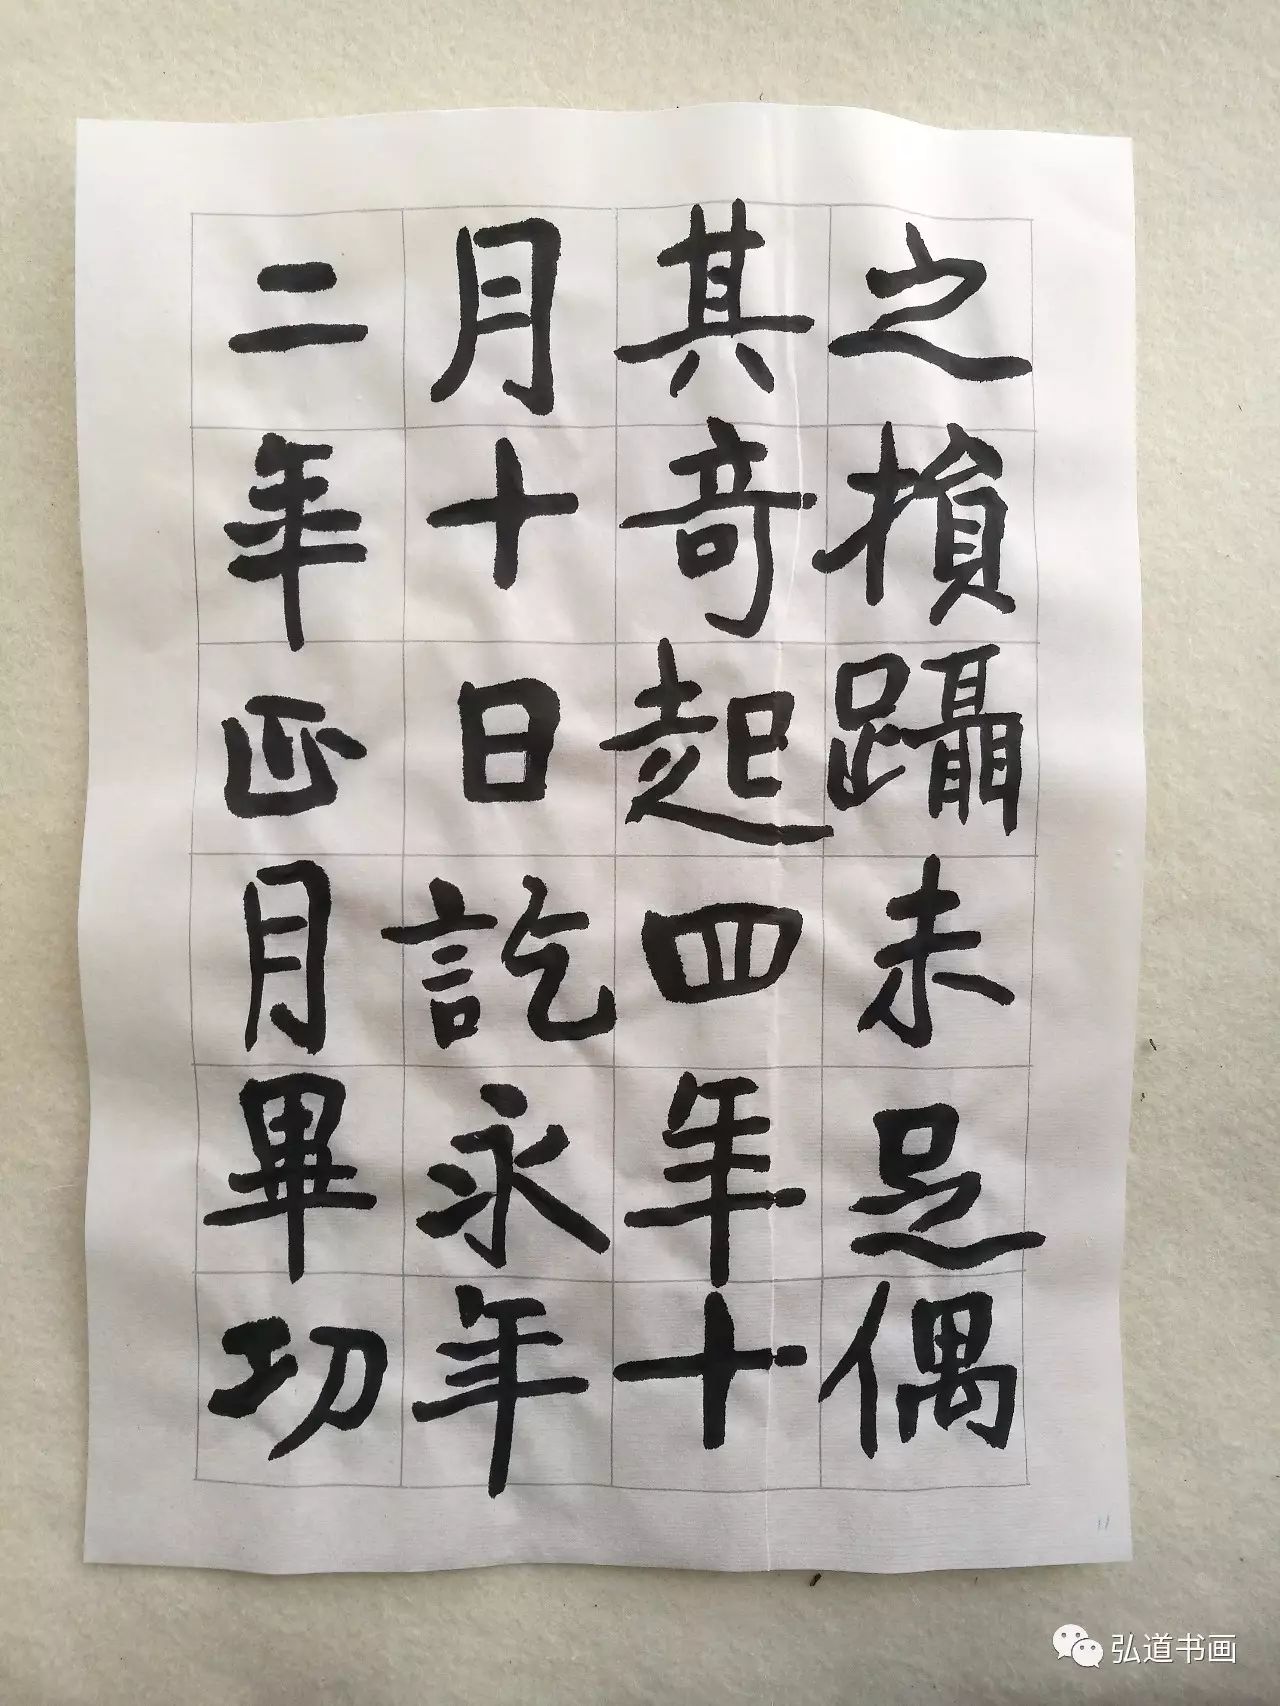 之損躡未足偶
其奇起四年十
月十日訖永年
二年正月畢功
11
弘道书画